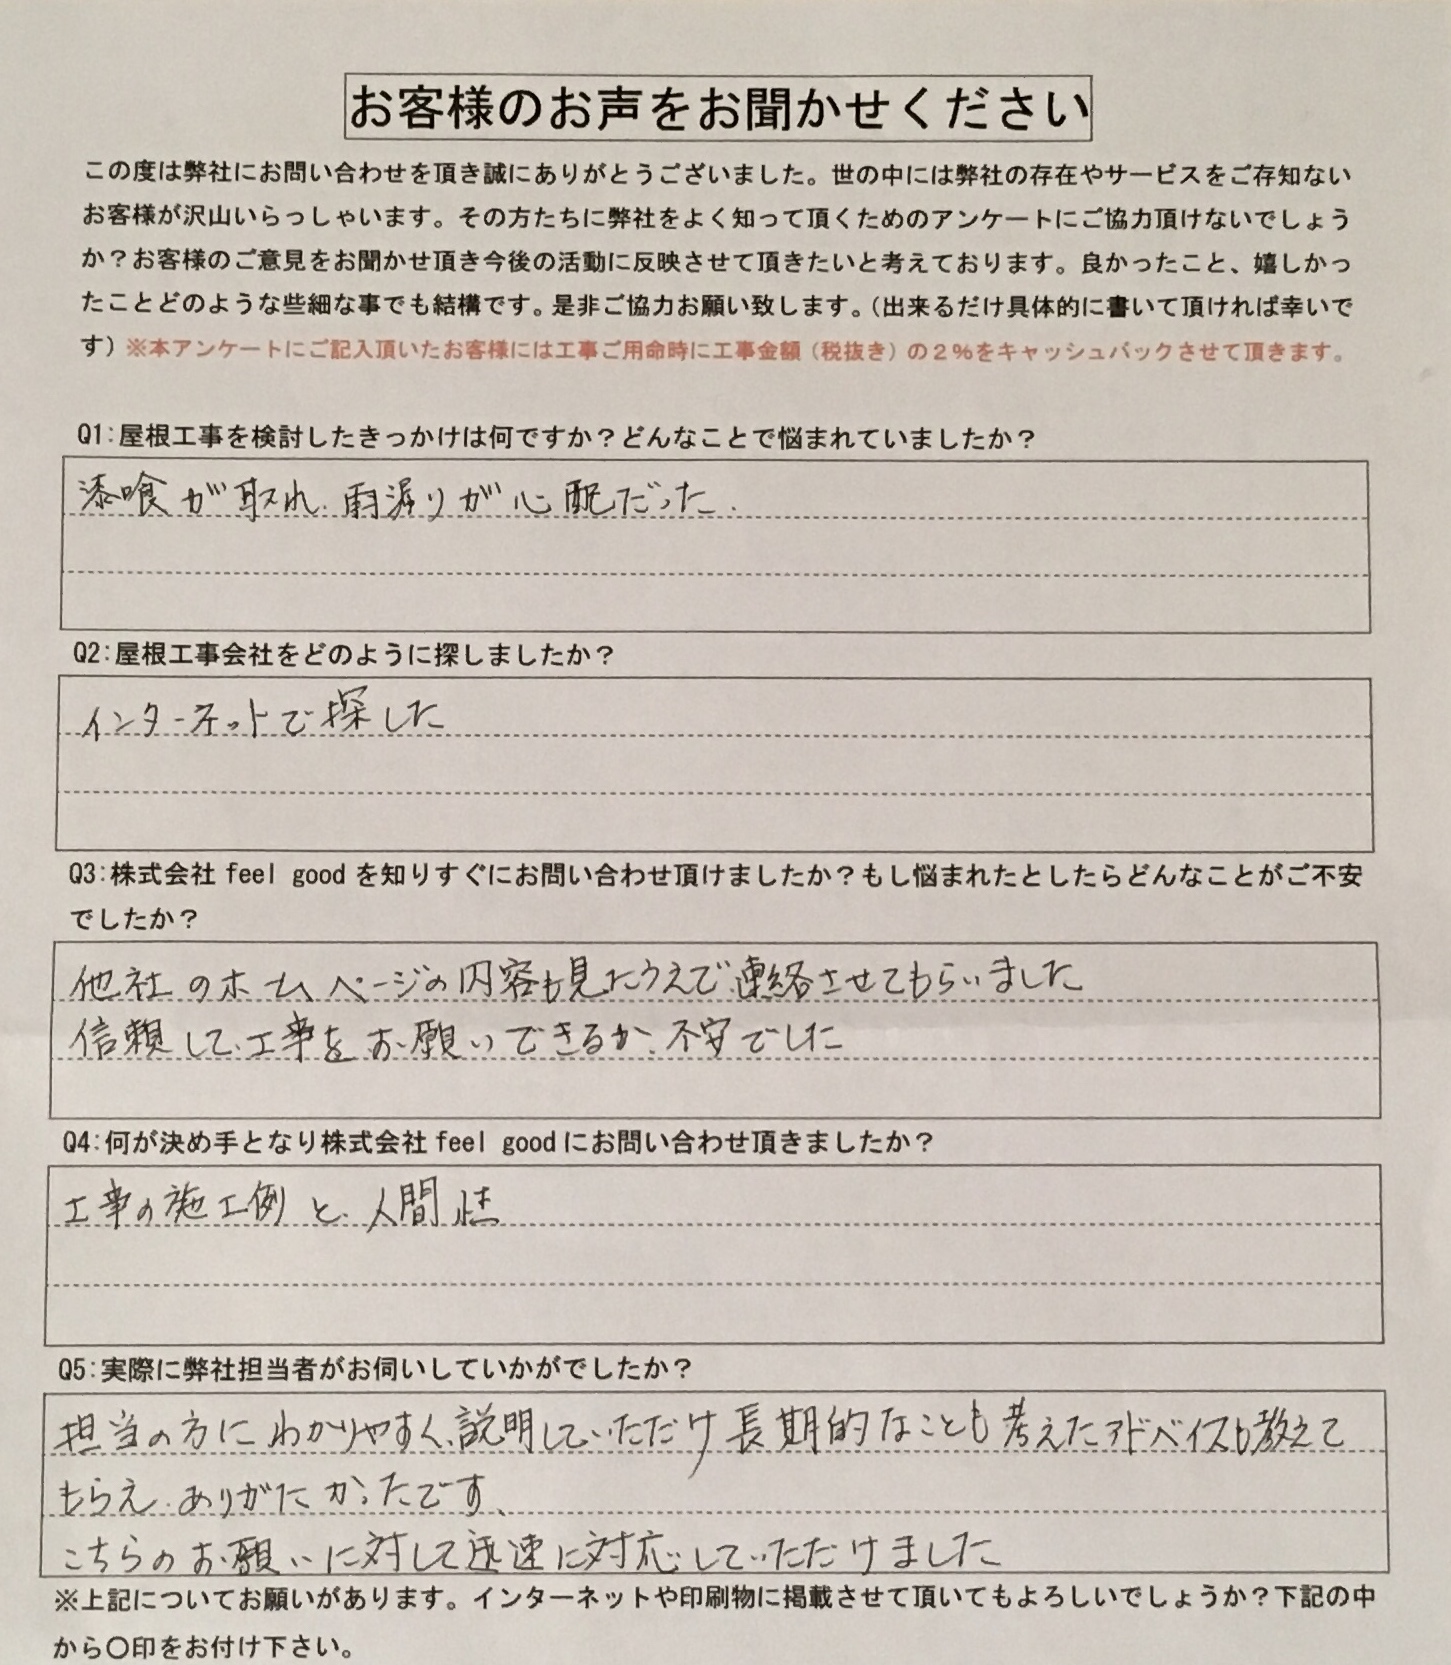 お客様のお声をお聞かせください
この度は弊社にお問い合わせを頂き誠にありがとうございました。世の中には弊社の存在やサービスをご存知ない
お客様が沢山いらっしゃいます。その方たちに弊社をよく知って頂くためのアンケートにご協力頂けないでしょう
か？お客様のご意見をお聞かせ頂き今後の活動に反映させて頂きたいと考えております。良かったこと、嬉しかっ
たことどのような些細な事でも結構です。是非ご協力お願い致します。（出来るだけ具体的に書いて頂ければ幸いで
す）※本アンケートにご記入頂いたお客様には工事ご用命時に工事金額（税抜き）の２％をキャッシュバックさせて頂きます。
Q1：屋根工事を検討したきっかけは何ですか？どんなことで悩まれていましたか？
漆喰が取れ、雨漏りが心配だった。
Q2：屋根工事会社をどのように探しましたか？
インターネットで探した
Q3：株式会社 feel good を知りすぐにお問い合わせ頂けましたか？もし悩まれたとしたらどんなことがご不安
でしたか？
他社のホームページの内容も見たうえで連絡させてもらいました
信頼して、工事をお願いできるか、不安でした
Q4：何が決め手となり株式会社 feel good にお問い合わせ頂きましたか？
工事の施工例と、人間性
Q5：実際に弊社担当者がお伺いしていかがでしたか？
担当の方にわかりやすく、説明していただけ長期的なことも考えたアドバイスも教えて
もらえ、ありがたかったです、
こちらのお願いに対して迅速に対応していただけました
※上記についてお願いがあります。インターネットや印刷物に掲載させて頂いてもよろしいでしょうか？下記の中
から〇印をお付け下さい。